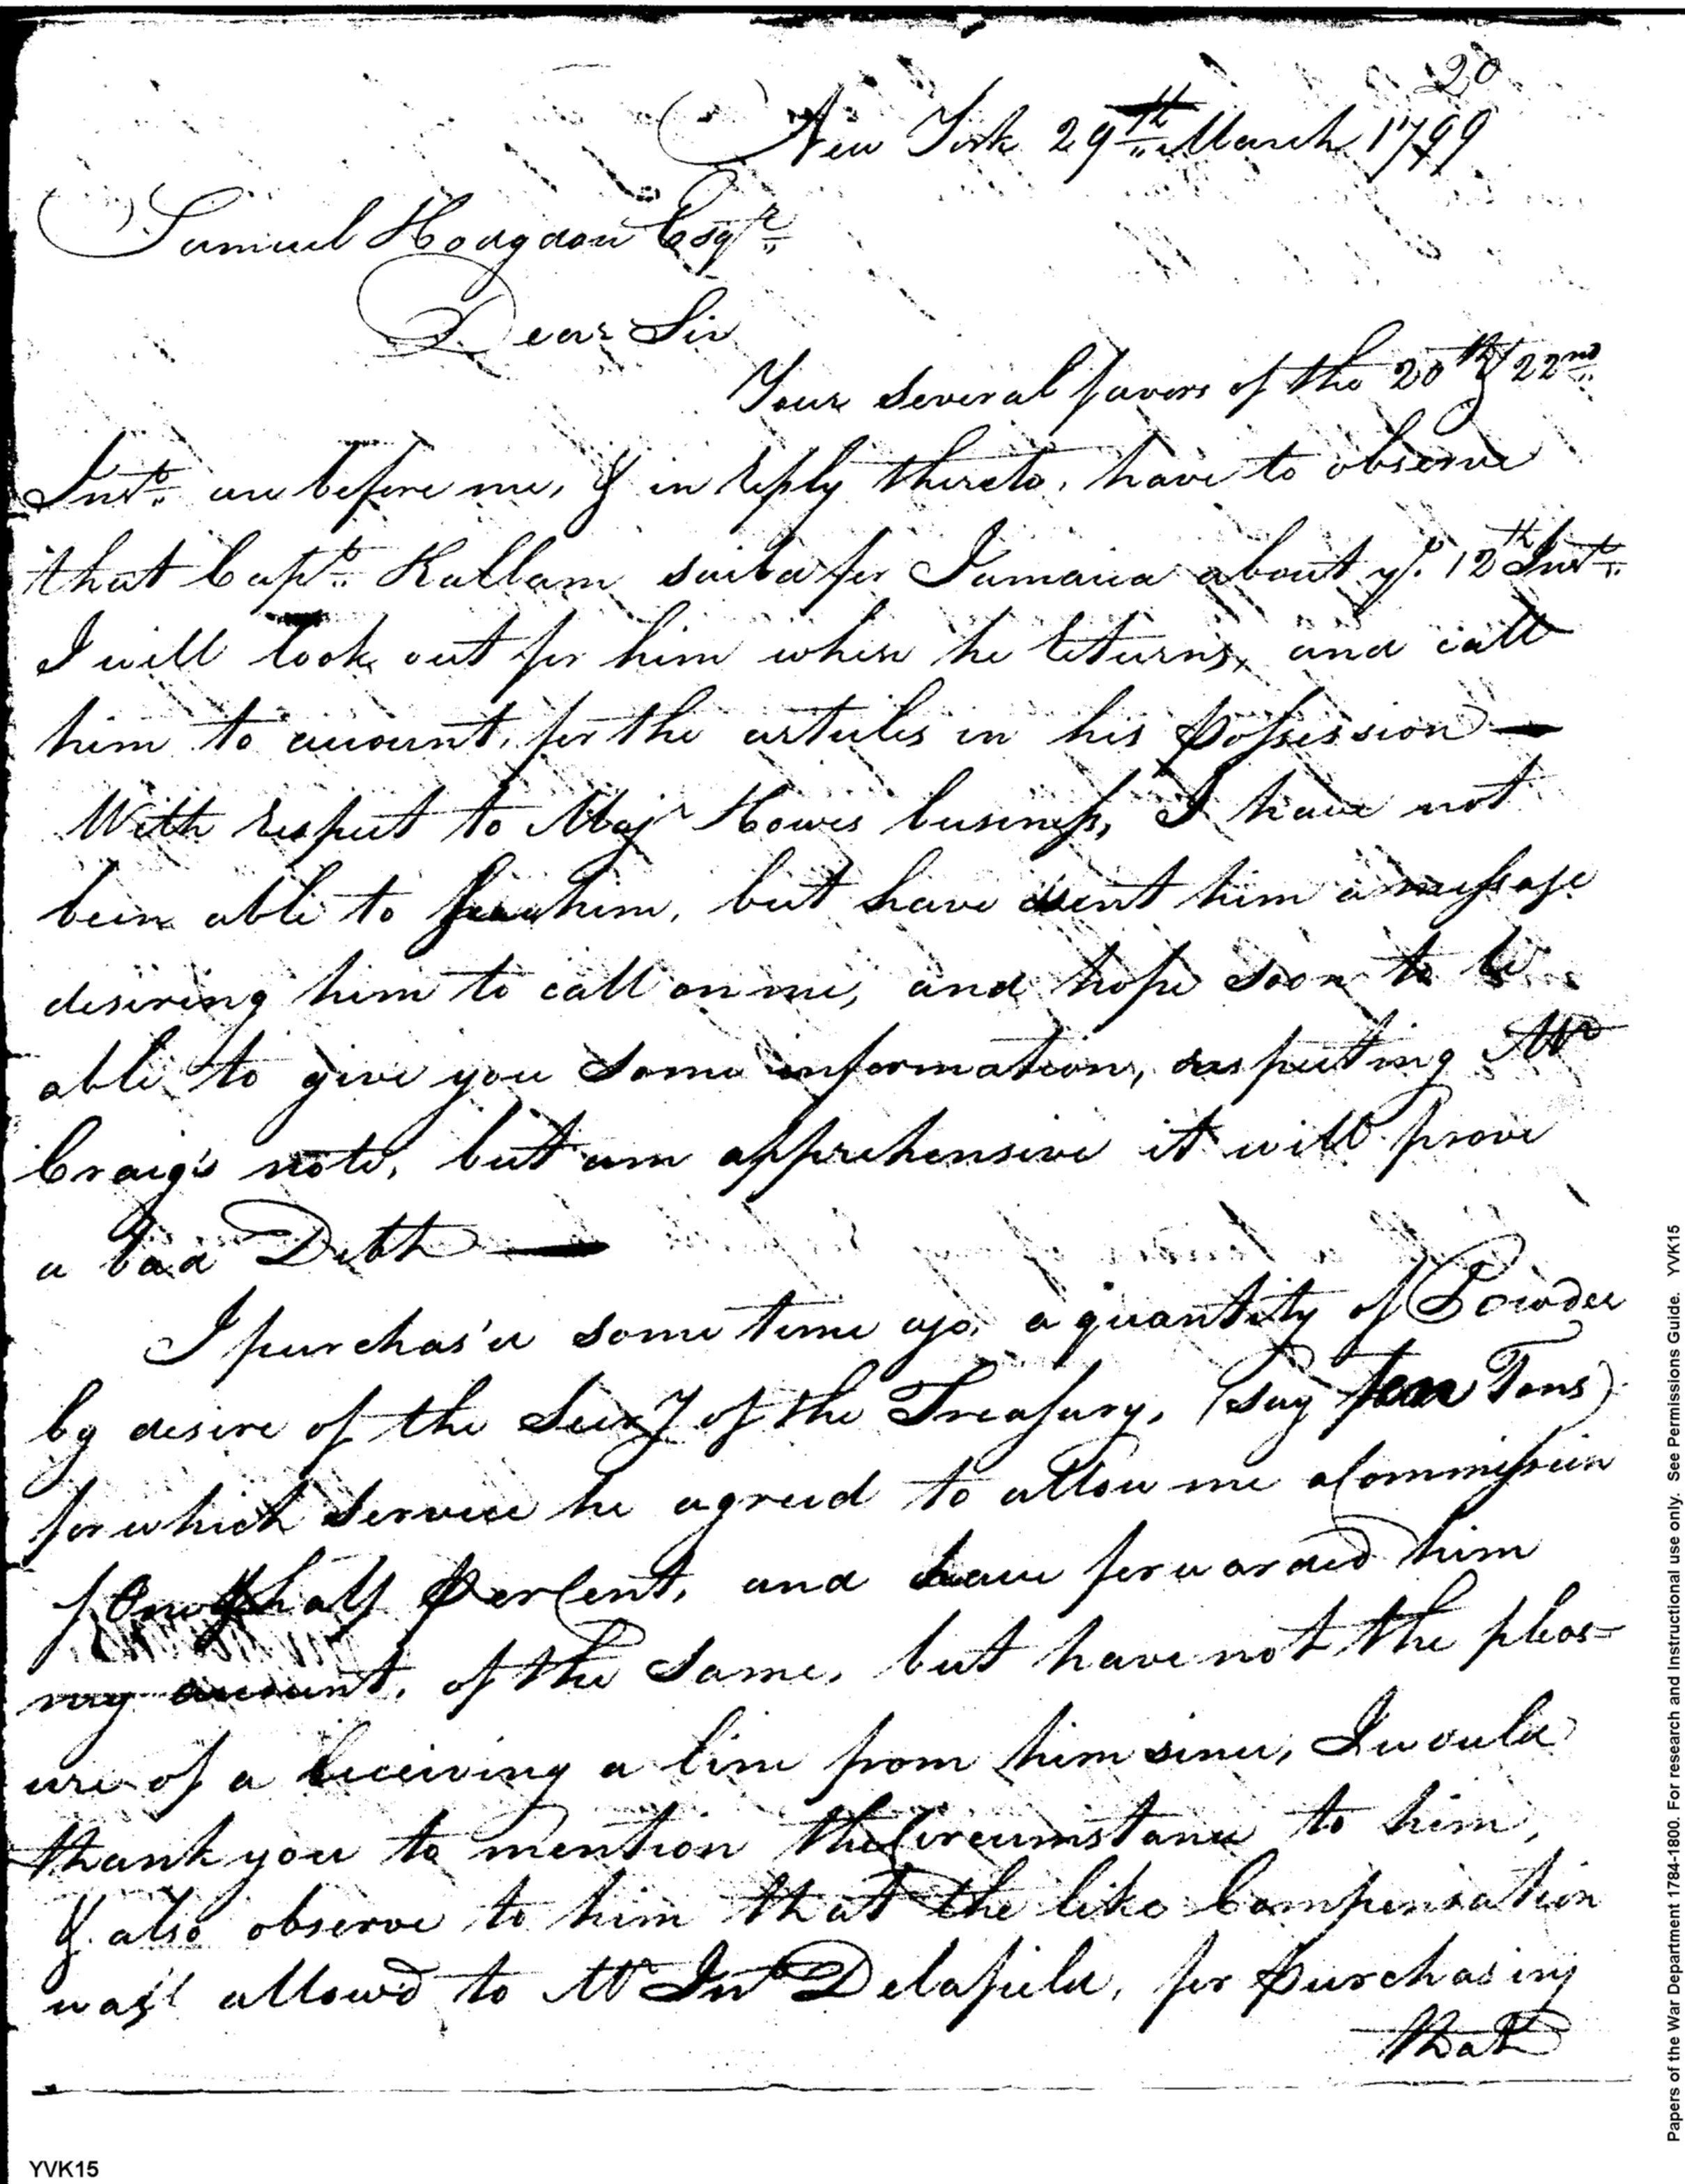 20
New York 29th March 1799
Samuel Hodgdon Esqr
Dear Sir
Your several favors of the 20th & 22nd
Inst. are before me, & in reply thereto, have to observe
that Capt. Kollam sail'd for Jamaica about ye. 12th Inst.
I will look out for him when he returns, and call
him to account, for the articles in his possession —
With respect to Majr Howes business, I have not
been able to see him, but have sent him a message
desiring him to call on me, and hope soon to be
able to give you some information, respecting Mr
Craig's note, but am apprehensive it will prove
a bad Debt —
I purchas'd some time ago, a quantity of Powder
by desire of the Secry of the Treasury, (say Tons)
for which service he agreed to allow me a Commission
of One & half per Cent, and have forwarded him
my account, of the same, but have not the pleas-
ure of a receiving a line from him since, I would
thank you to mention the Circumstance to him,
& also observe to him that the like Compensation
was allow'd to Mr Jno Delafield, for purchasing
that
YVK15
Papers of the War Department 1784-1800. For research and Instructional use only. See Permissions Guide. YVK15